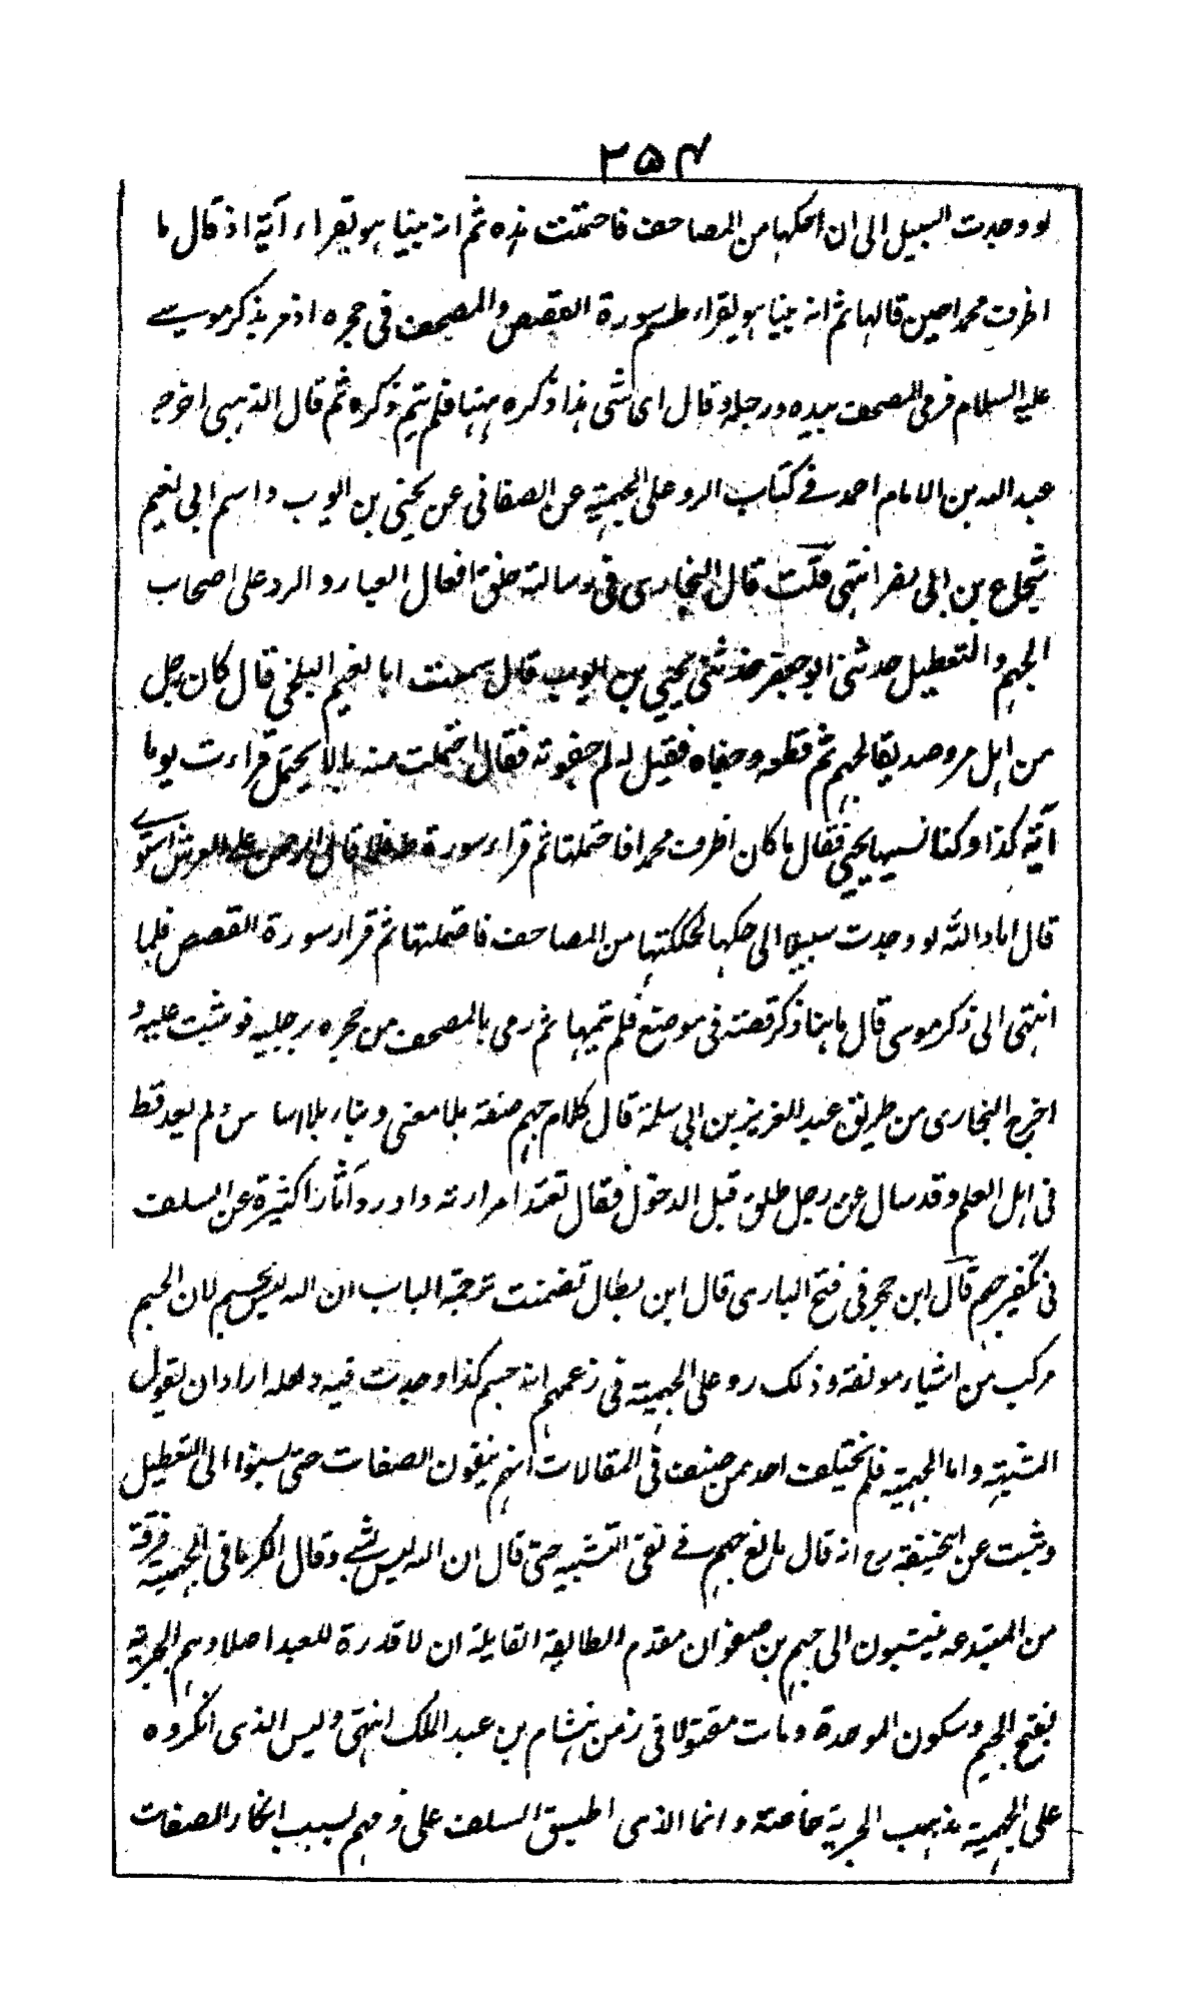 ۲۵۴
لو وجدت السبيل الى ان احكها من المصاحف فاحتملت هذه ثم انه بينا هو يقراء آية اذ قال ما
اظرف محمدا حين قالها ثم انه بينا هو يقراء طسم سورة القصص والمصحف فى حجره اذ مر بذكر موسے
عليه السلام فرمى المصحف بيده ورجله وقال اى شى هذا ذكره ههنا فلم يتم ذكره ثم قال الذهبى اخرجه
عبد الله بن الامام احمد فے كتاب الرد على الجهمية عن الصغانى عن يحيى بن ايوب واسم ابى نعيم
شجاع بن ابى نصر انتهى قلت قال البخارى فى رسالة خلق افعال العباد والرد على اصحاب
الجهم والتعطيل حدثنى ابو جعفر حدثنى يحيى بن ايوب قال سمعت ابا نعيم البلخى قال كان رجل
من اهل مرو صديقا لجهم ثم قطعه وجفاه فقيل له لم جفوته فقال احتملت منه ما لا يحتمل قراءت يوما
آية كذا وكذا نسيها يحيى فقال ما كان اظرف محمدا فاحتملتها ثم قراء سورة طه فلما قال الرحمن على العرش استوے
قال اما والله لو وجدت سبيلا الى حكها لحككتها من المصاحف فاحتملتها ثم قراء سورة القصص فلما
انتهى الى ذكر موسى قال ما هذا ذكر قصته فى موضع فلم يتمها ثم رمى بالمصحف من حجره برجليه فوثبت عليه و
اخرج البخارى من طريق عبد العزيز بن ابى سلمة قال كلام جهم صنعة بلا معنى وبناء بلا اساس ولم يعد قط
فى اهل العلم وقد سال عن رجل طلق قبل الدخول فقال تعتد امراته واورد آثارا كثيرة عن السلف
فى تكفير جهم قال ابن حجر فى فتح البارى قال ابن بطال تضمنت ترجمة الباب ان الله ليس بجسم لان الجسم
مركب من اشياء مولفة وذلك رد على الجهمية فى زعمهم انه جسم كذا وجدت فيه ولعله اراد ان يقول
المشبهة واما الجهمية فلم يختلف احد ممن صنف فى المقالات انهم ينفون الصفات حتى نسبوا الى التعطيل
وثبت عن ابيحنيفة رح انه قال بالغ جهم فے نفى التشبيه حتى قال ان الله ليس بشے وقال الكرمانى الجهمية فرقة
من المبتدعه ينتسبون الى جهم بن صفوان مقدم الطائفة القايلة ان لا قدرة للعبد اصلا وهم الجبرية
بفتح الجيم وسكون الموحدة ومات مقتولا فى زمن هشام بن عبد الملك انتهى وليس الذى انكروه
على الجهمية مذهب الجبرية خاصة وانما الذى اطبق السلف على ذمهم بسبب انكار الصفات